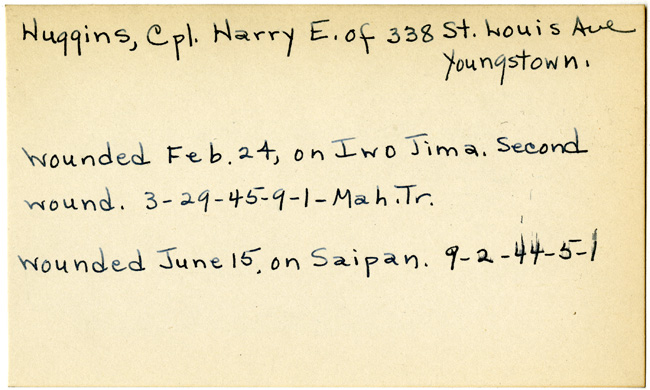 Huggins, Cpl. Harry E. of 338 St. Louis Ave
Youngstown.
Wounded Feb. 24, on Iwo Jima. Second
wound. 3-29-45-9-1-Mah.Tr.
Wounded June 15, on Saipan. 9-2-44-5-1